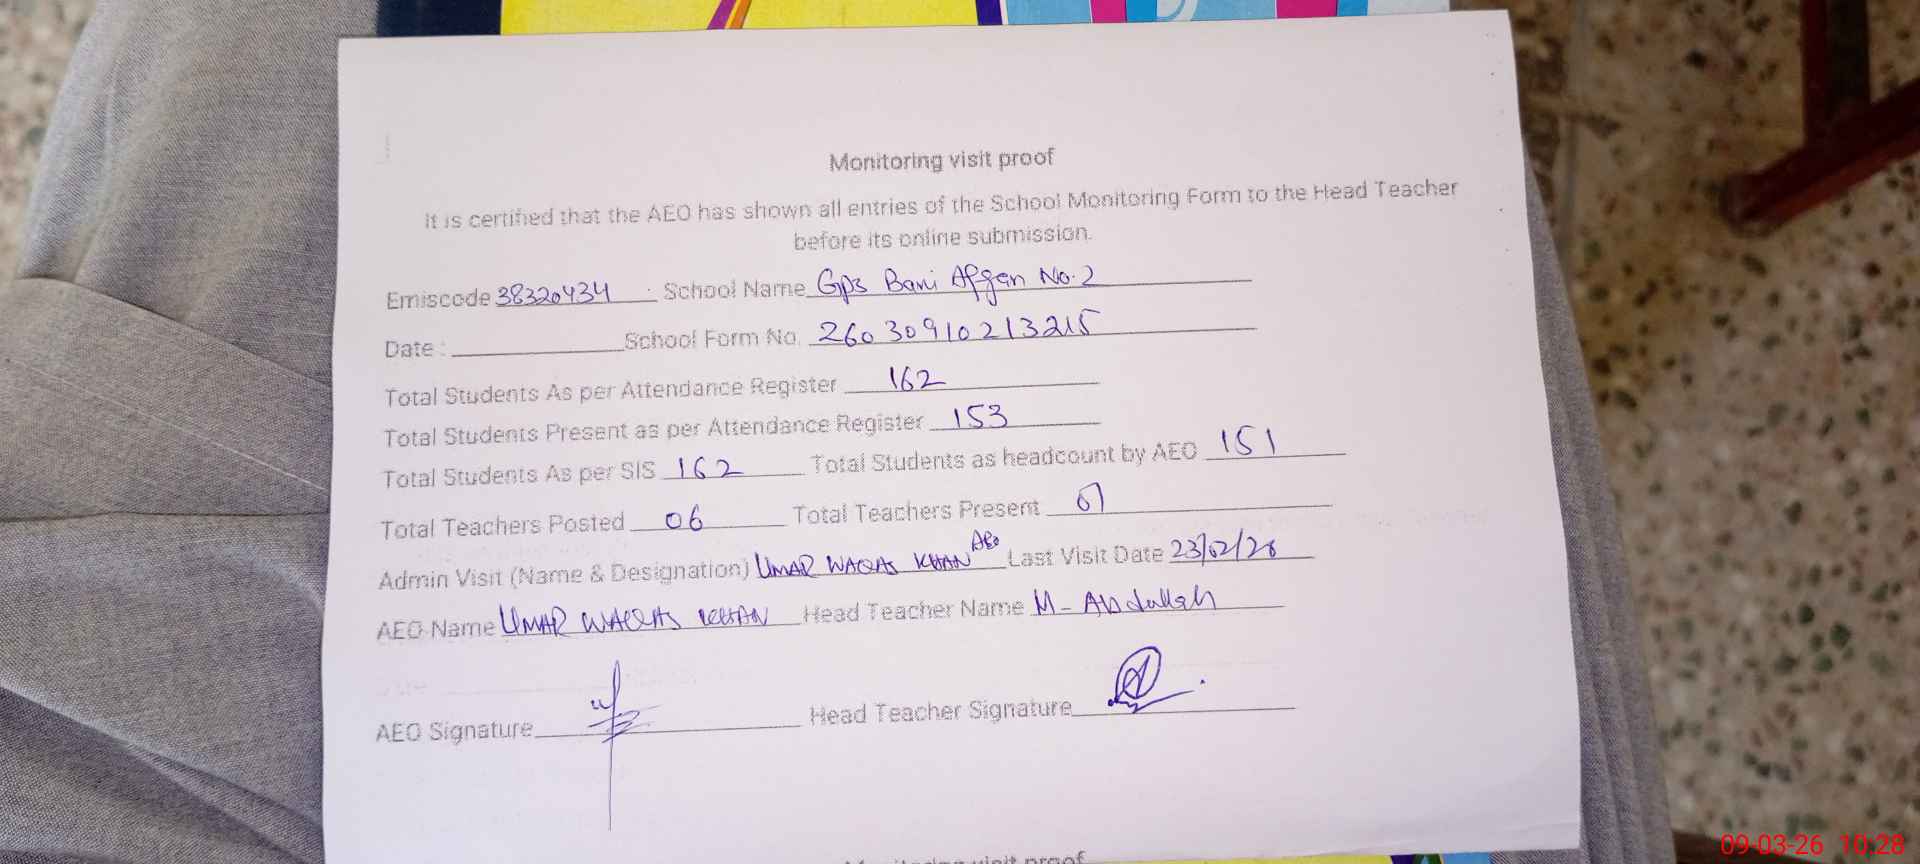 Monitoring visit proof
It is certified that the AEO has shown all entries of the School Monitoring Form to the Head Teacher
before its online submission.
Emiscode 38320434 School Name Gps Bani Afgan No.2
Date : School Form No. 26030910213215
Total Students As per Attendance Register 162
Total Students Present as per Attendance Register 153
Total Students As per SIS 162 Total Students as headcount by AEO 151
Total Teachers Posted 06 Total Teachers Present
Admin Visit (Name & Designation) UMAR WAQAS KHAN AEO Last Visit Date 23/02/26
AEO Name UMAR WAQAS KHAN Head Teacher Name M-Abdullah
AEO Signature Head Teacher Signature
Monitoring visit proof
09-03-26 10:28